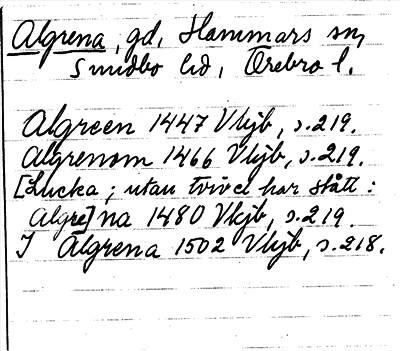 Algrena, gd, Hammars sn,
Sundbo hd, Örebro l.
Algreen 1447 Vkjb, s. 219.
Algrenom 1466 Vkjb, s. 219.
[Lucka; utan tvivel har stått:
Algre]na 1480 Vkjb, s. 219.
I Algrena 1502 Vkjb, s. 218.